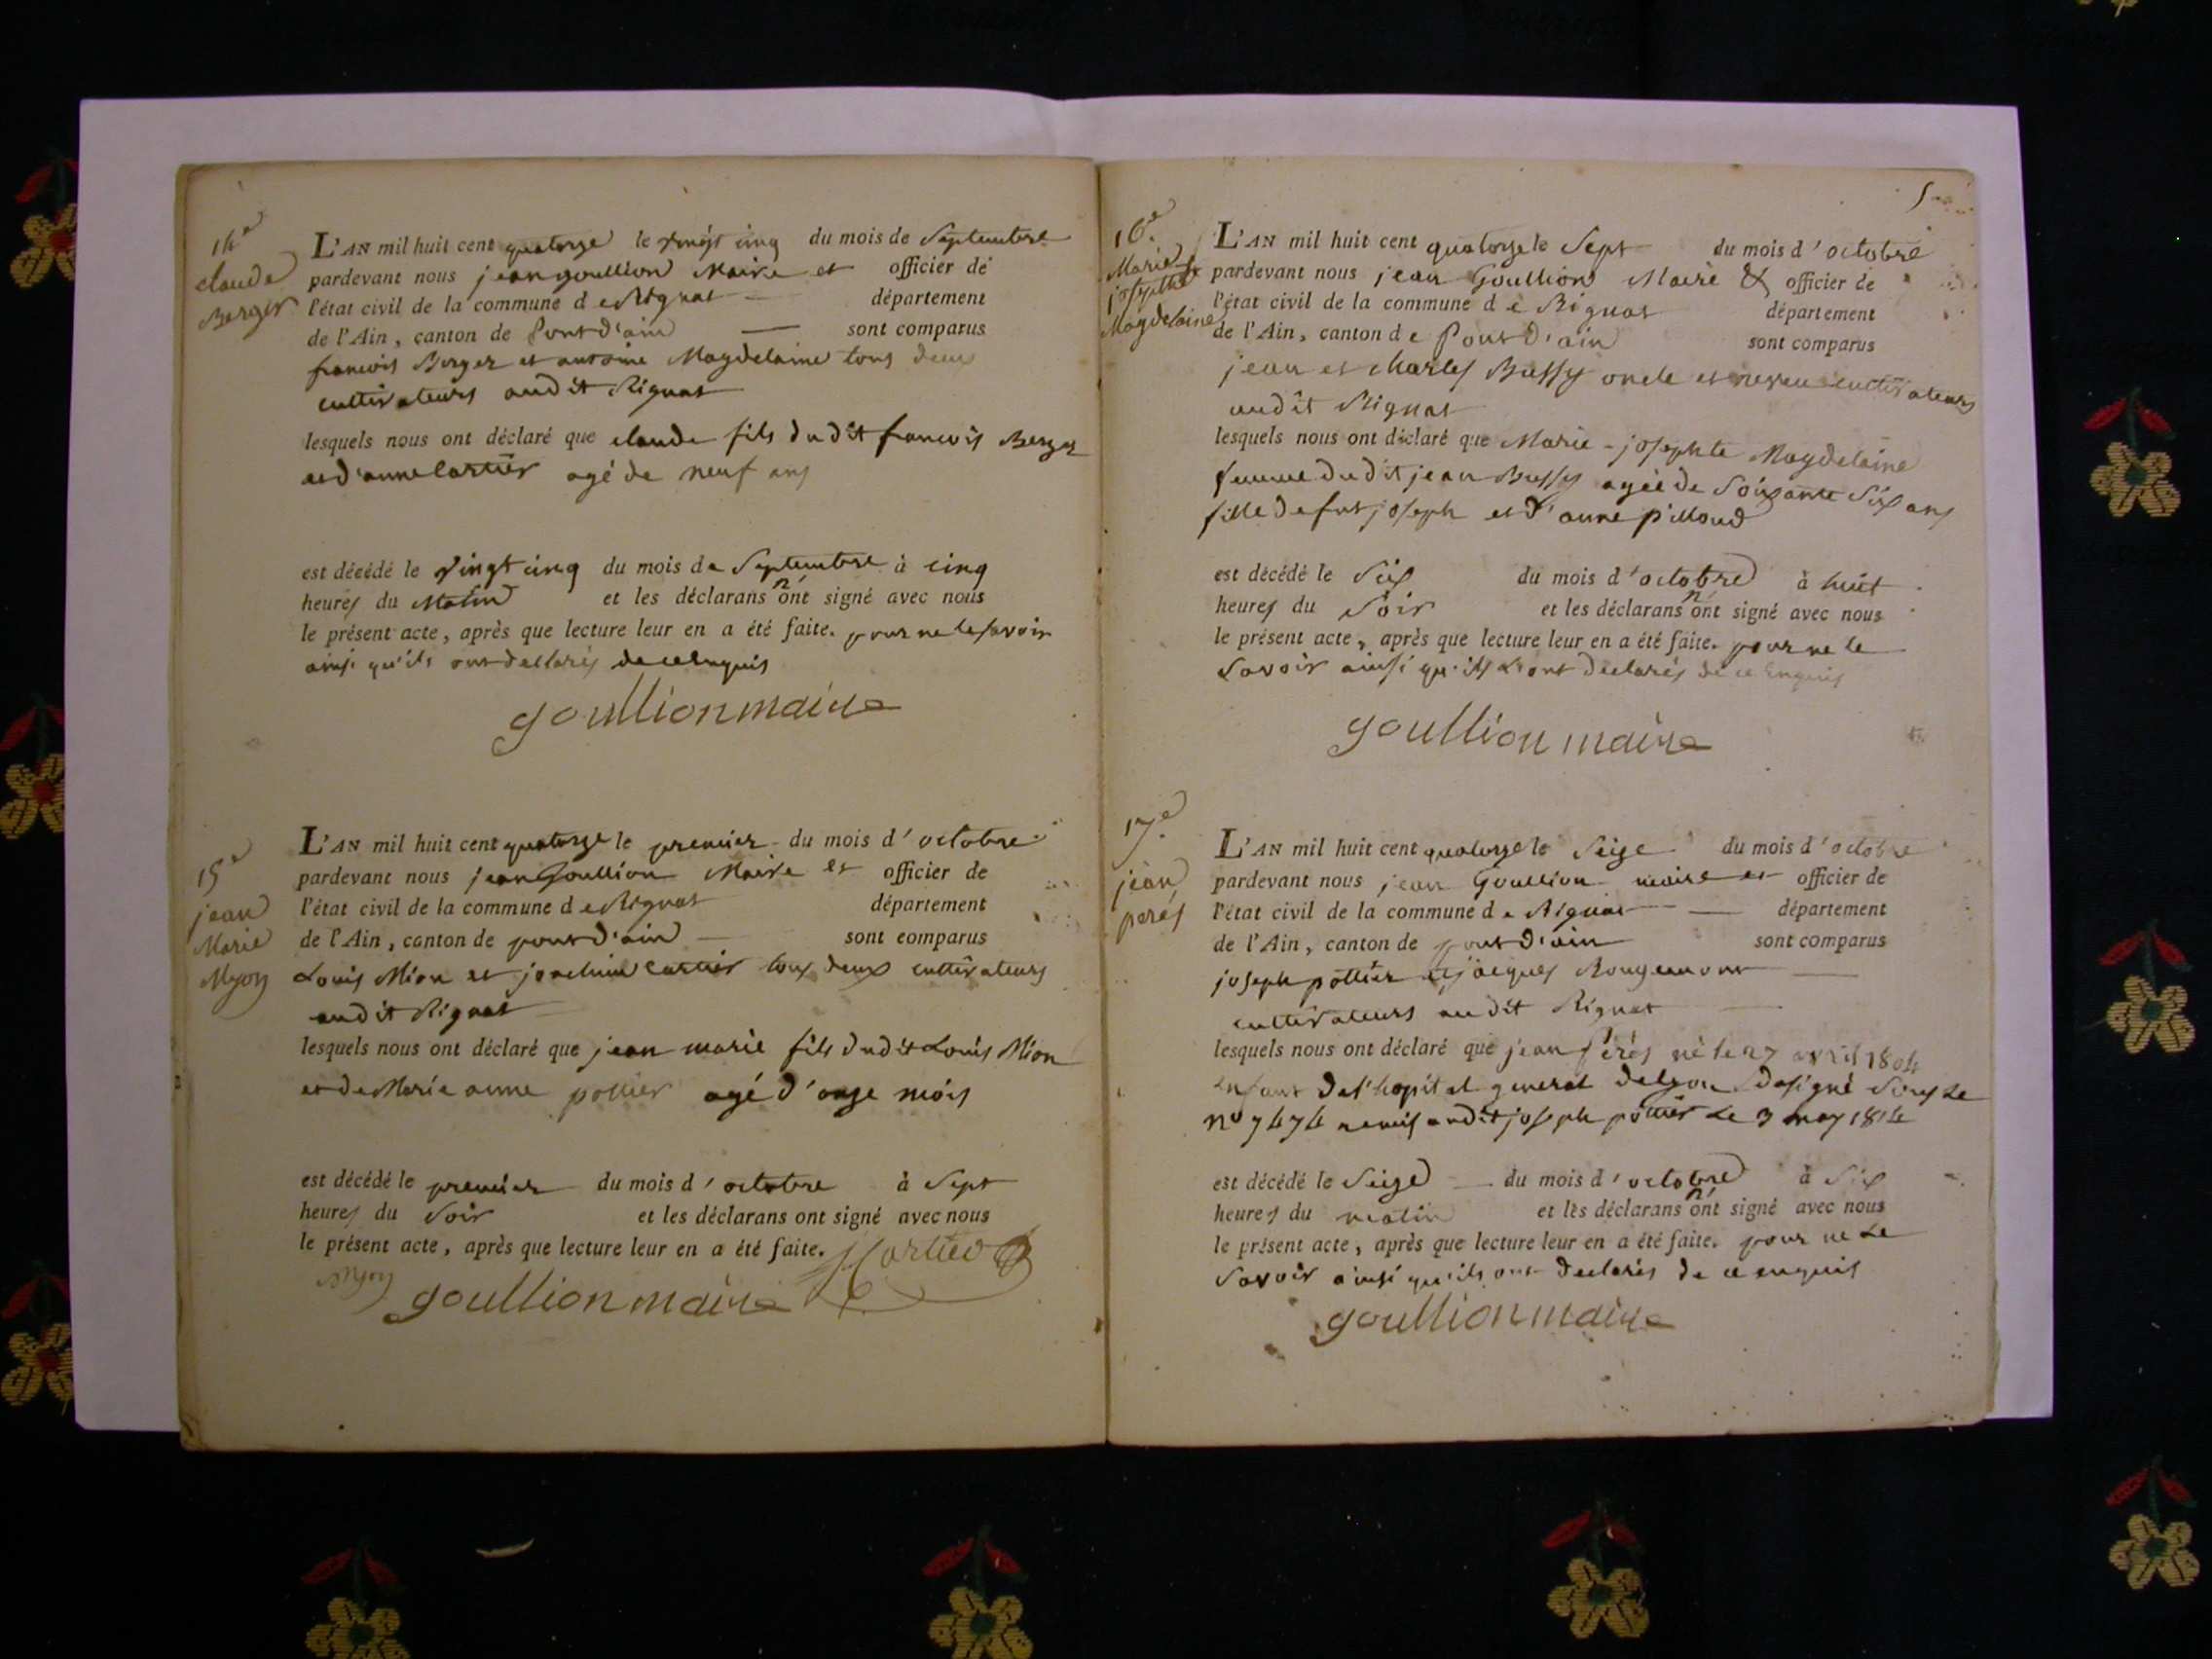 14e
claude
Berger
L'AN mil huit cent quatorze le vingt cinq du mois de Septembre
pardevant nous jean goullion Maire et officier de
l'état civil de la commune de Rignat département
de l'Ain, canton de Pont d'ain sont comparus
francois Berger et antoine Magdelaine tous deux
cultivateurs audit Rignat
lesquels nous ont déclaré que claude fils dudit francois Berger
et d'anne Cartier agé de neuf ans
est décédé le vingt cinq du mois de Septembre à cinq
heures du Matin et les déclarans n'ont signé avec nous
le présent acte, après que lecture leur en a été faite. pour ne le savoir
ainsi qu'ils ont declarés de ce enquis
goullion maire
15e
jean
Marie
Myon
L'AN mil huit cent quatorze le premier du mois d'octobre
pardevant nous jean Goullion Maire et officier de
l'état civil de la commune de Rignat département
de l'Ain, canton de pont d'ain sont comparus
Louis Mion et joachim Cartier tous deux cultivateurs
audit Rignat
lesquels nous ont déclaré que jean marie fils dudit Louis Mion
et de Marie anne pottier agé d'onze mois
est décédé le premier du mois d'octobre à Sept
heures du Soir et les déclarans ont signé avec nous
le présent acte, après que lecture leur en a été faite. Cartier
Myon goullion maire
16e
Marie
josephte
Magdelaine
L'AN mil huit cent quatorze le Sept du mois d'octobre
pardevant nous jean Goullion Maire & officier de
l'état civil de la commune de Rignat département
de l'Ain, canton de Pont D'ain sont comparus
jean et charles Bussy oncle et neveu cultivateurs
audit Rignat
lesquels nous ont déclaré que Marie-josephte Magdelaine
femme dudit jean Bussy agée de Soixante Six ans
fille de fut joseph et d'anne pilloud
est décédé le Six du mois d'octobre à huit
heures du Soir et les déclarans n'ont signé avec nous
le présent acte, après que lecture leur en a été faite. pour ne le
Savoir ainsi qu'ils ont declarés de ce Enquis
goullion maire
17e
jean
perés
L'AN mil huit cent quatorze le Seize du mois d'octobre
pardevant nous jean Goullion maire et officier de
l'état civil de la commune de Rignat département
de l'Ain, canton de pont d'ain sont comparus
joseph pottier et jacques Rougemont
cultivateurs audit Rignat
lesquels nous ont déclaré que jean perés né le 27 avril 1804
Enfant de l'hopital general de Lyon designé Sous Le
no 7474 remis audit joseph pottier Le 3 may 1814
est décédé le Seize du mois d'octobre à Six
heures du matin et les déclarans n'ont signé avec nous
le présent acte, après que lecture leur en a été faite. pour ne Le
Savoir ainsi qu'ils ont declarés de ce enquis
goullion maire